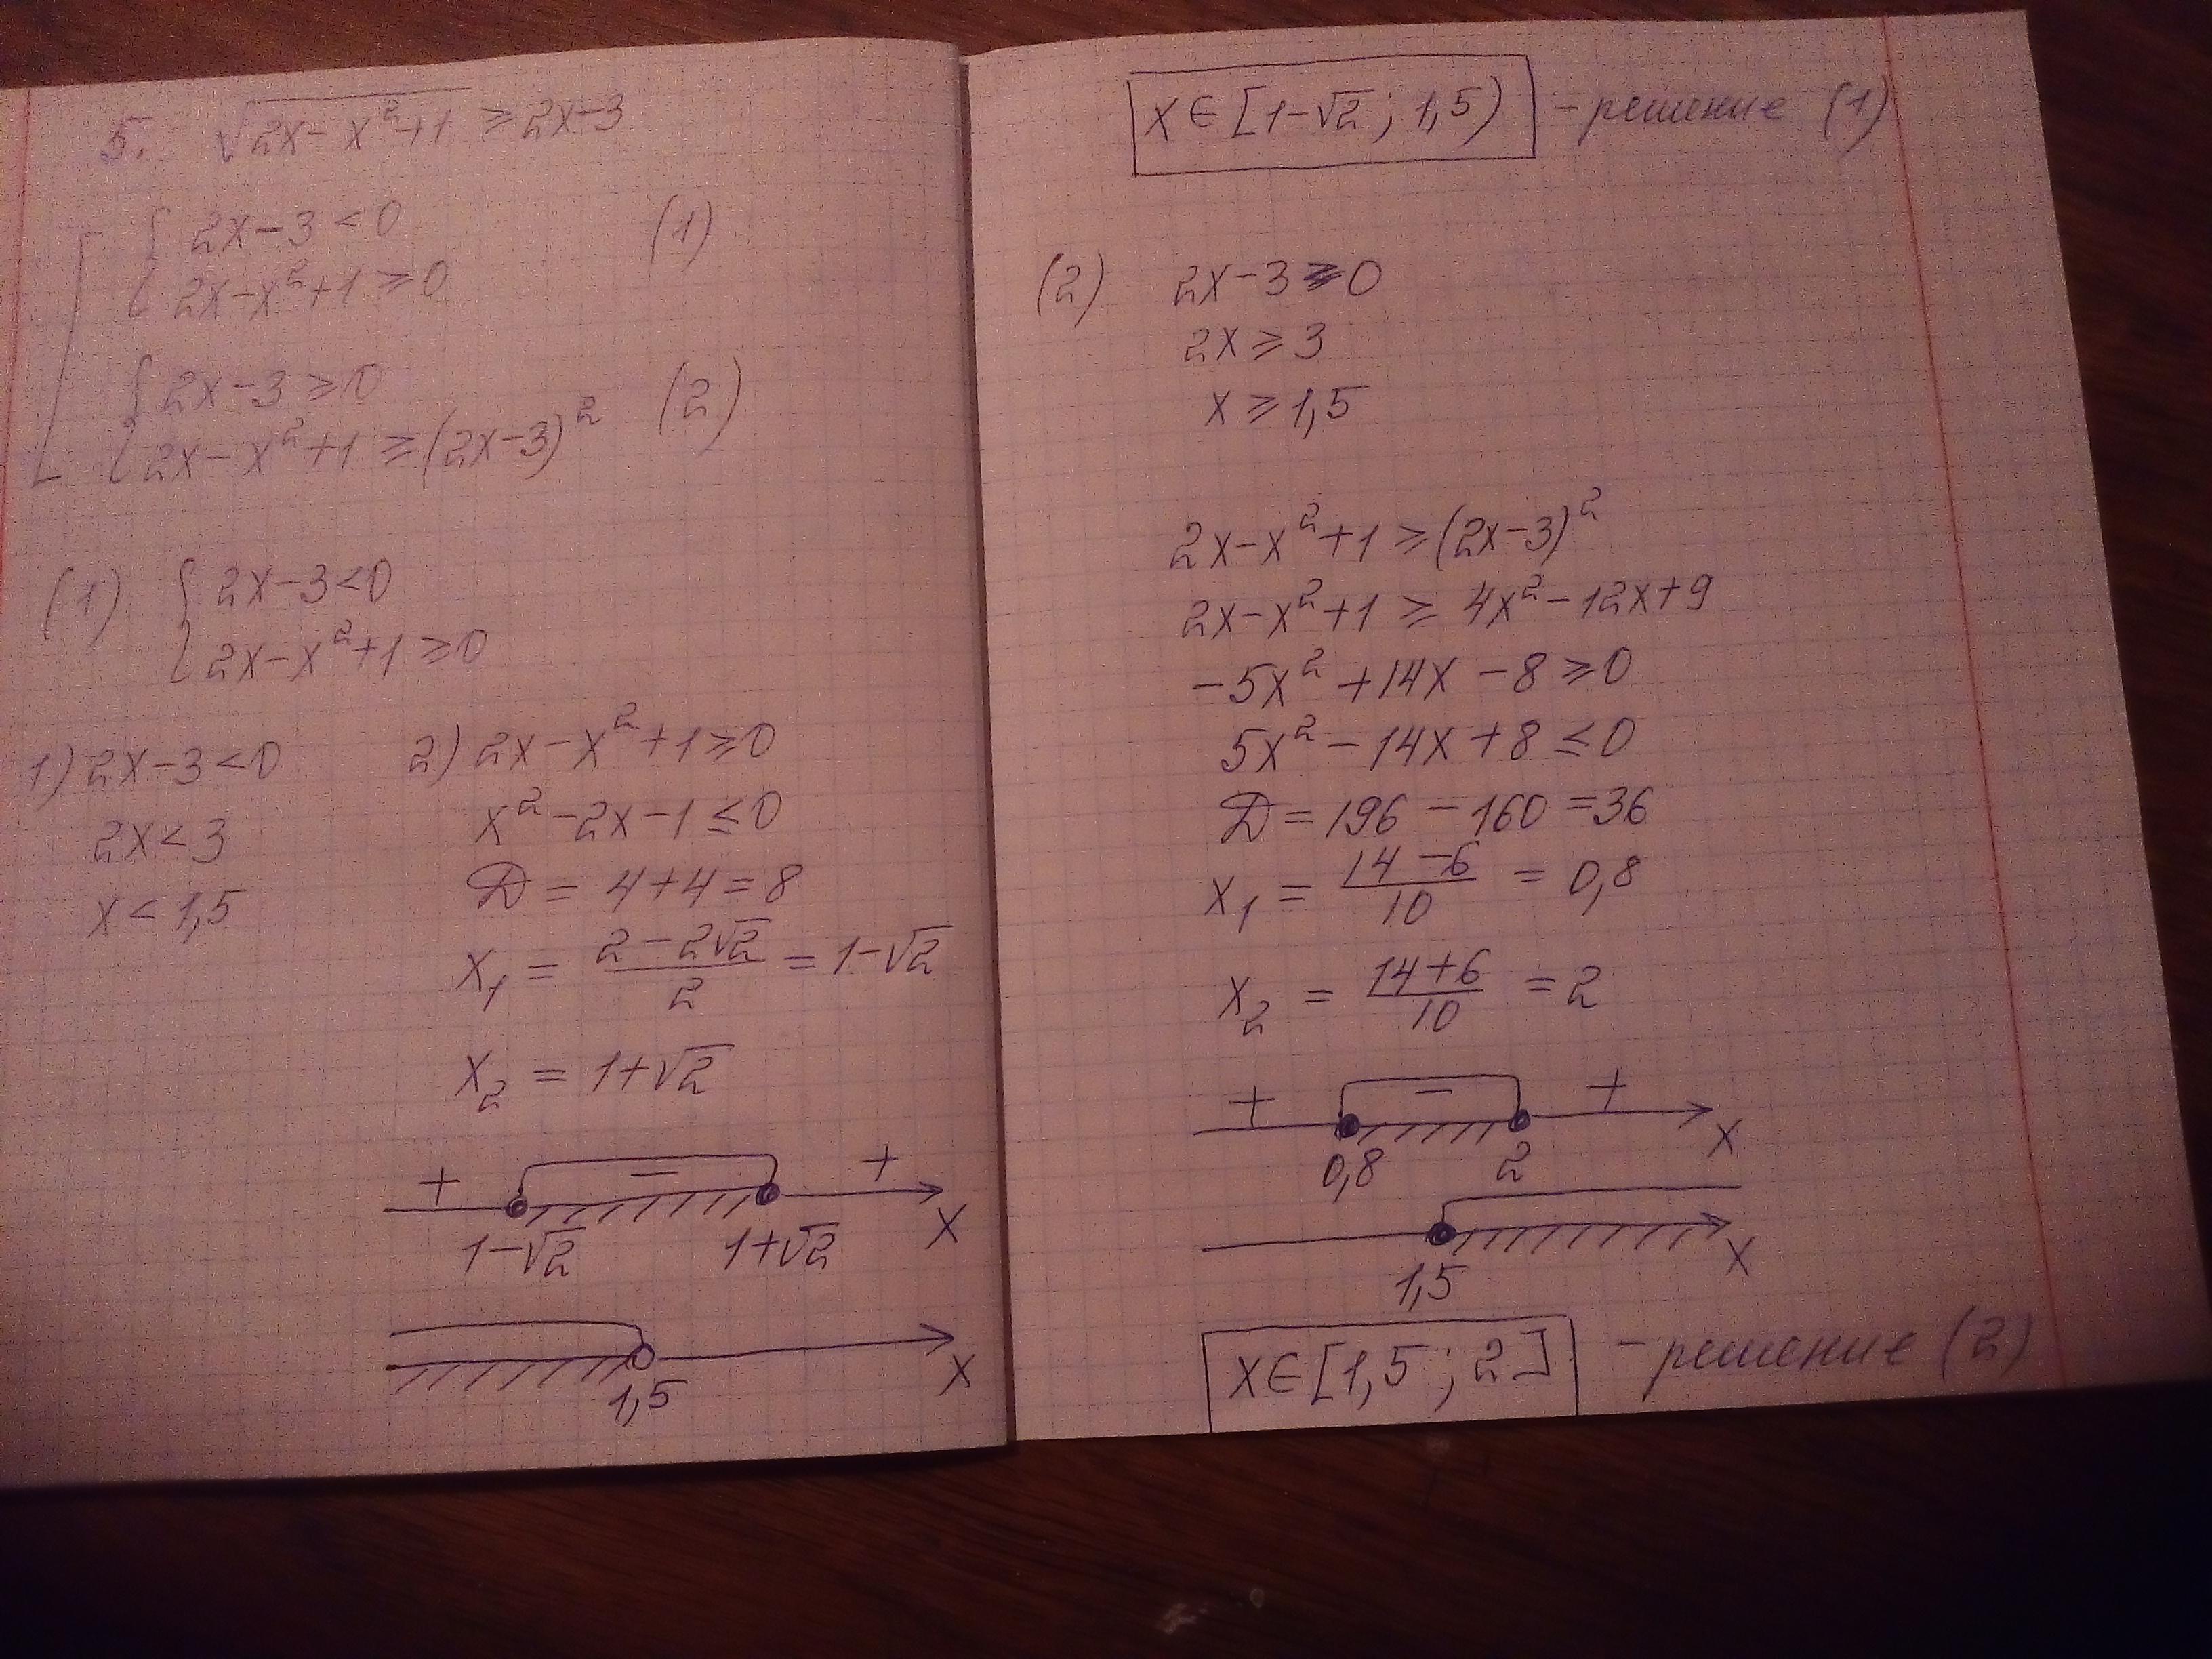 5. √(2x-x²+1) ≥ 2x-3
[ { 2x-3<0
2x-x²+1≥0 (1)
{ 2x-3≥0
2x-x²+1≥(2x-3)² (2)
(1) { 2x-3<0
2x-x²+1≥0
1) 2x-3<0
2x<3
x<1,5
2) 2x-x²+1≥0
x²-2x-1≤0
D = 4+4=8
x₁ = (2-2√2)/2 = 1-√2
x₂ = 1+√2
+ - +
1-√2 1+√2 x
1,5 x
x∈[1-√2; 1,5) - решение (1)
(2) 2x-3≥0
2x≥3
x≥1,5
2x-x²+1≥(2x-3)²
2x-x²+1 ≥ 4x²-12x+9
-5x²+14x-8≥0
5x²-14x+8≤0
D=196-160=36
x₁ = (14-6)/10 = 0,8
x₂ = (14+6)/10 = 2
+ - +
0,8 2 x
1,5 x
x∈[1,5; 2] - решение (2)